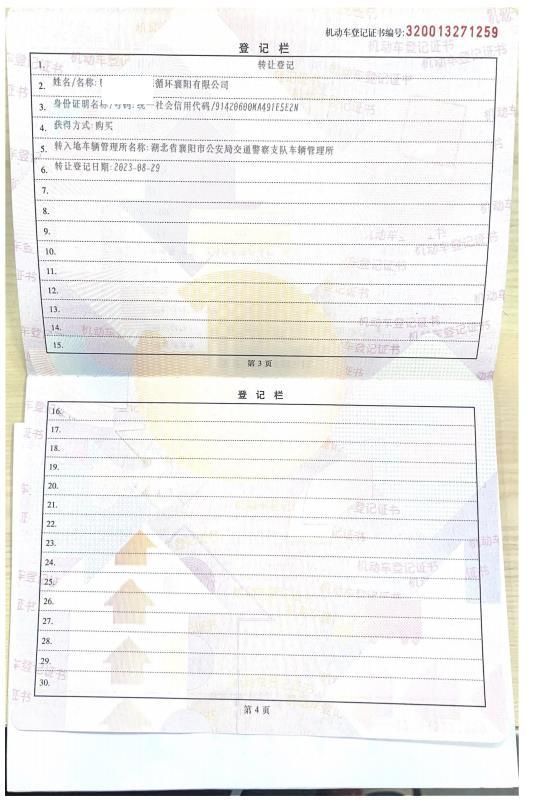 机动车登记证书编号:320013271259
登记栏
1. 转让登记
2. 姓名/名称: 循环襄阳有限公司
3. 身份证明名称/号码:统一社会信用代码/91420600MA491F5E2N
4. 获得方式:购买
5. 转入地车辆管理所名称:湖北省襄阳市公安局交通警察支队车辆管理所
6. 转让登记日期:2023-08-29
7.
8.
9.
10.
11.
12.
13.
14.
15.
第 3 页
登记栏
16.
17.
18.
19.
20.
21.
22.
23.
24.
25.
26.
27.
28.
29.
30.
第 4 页